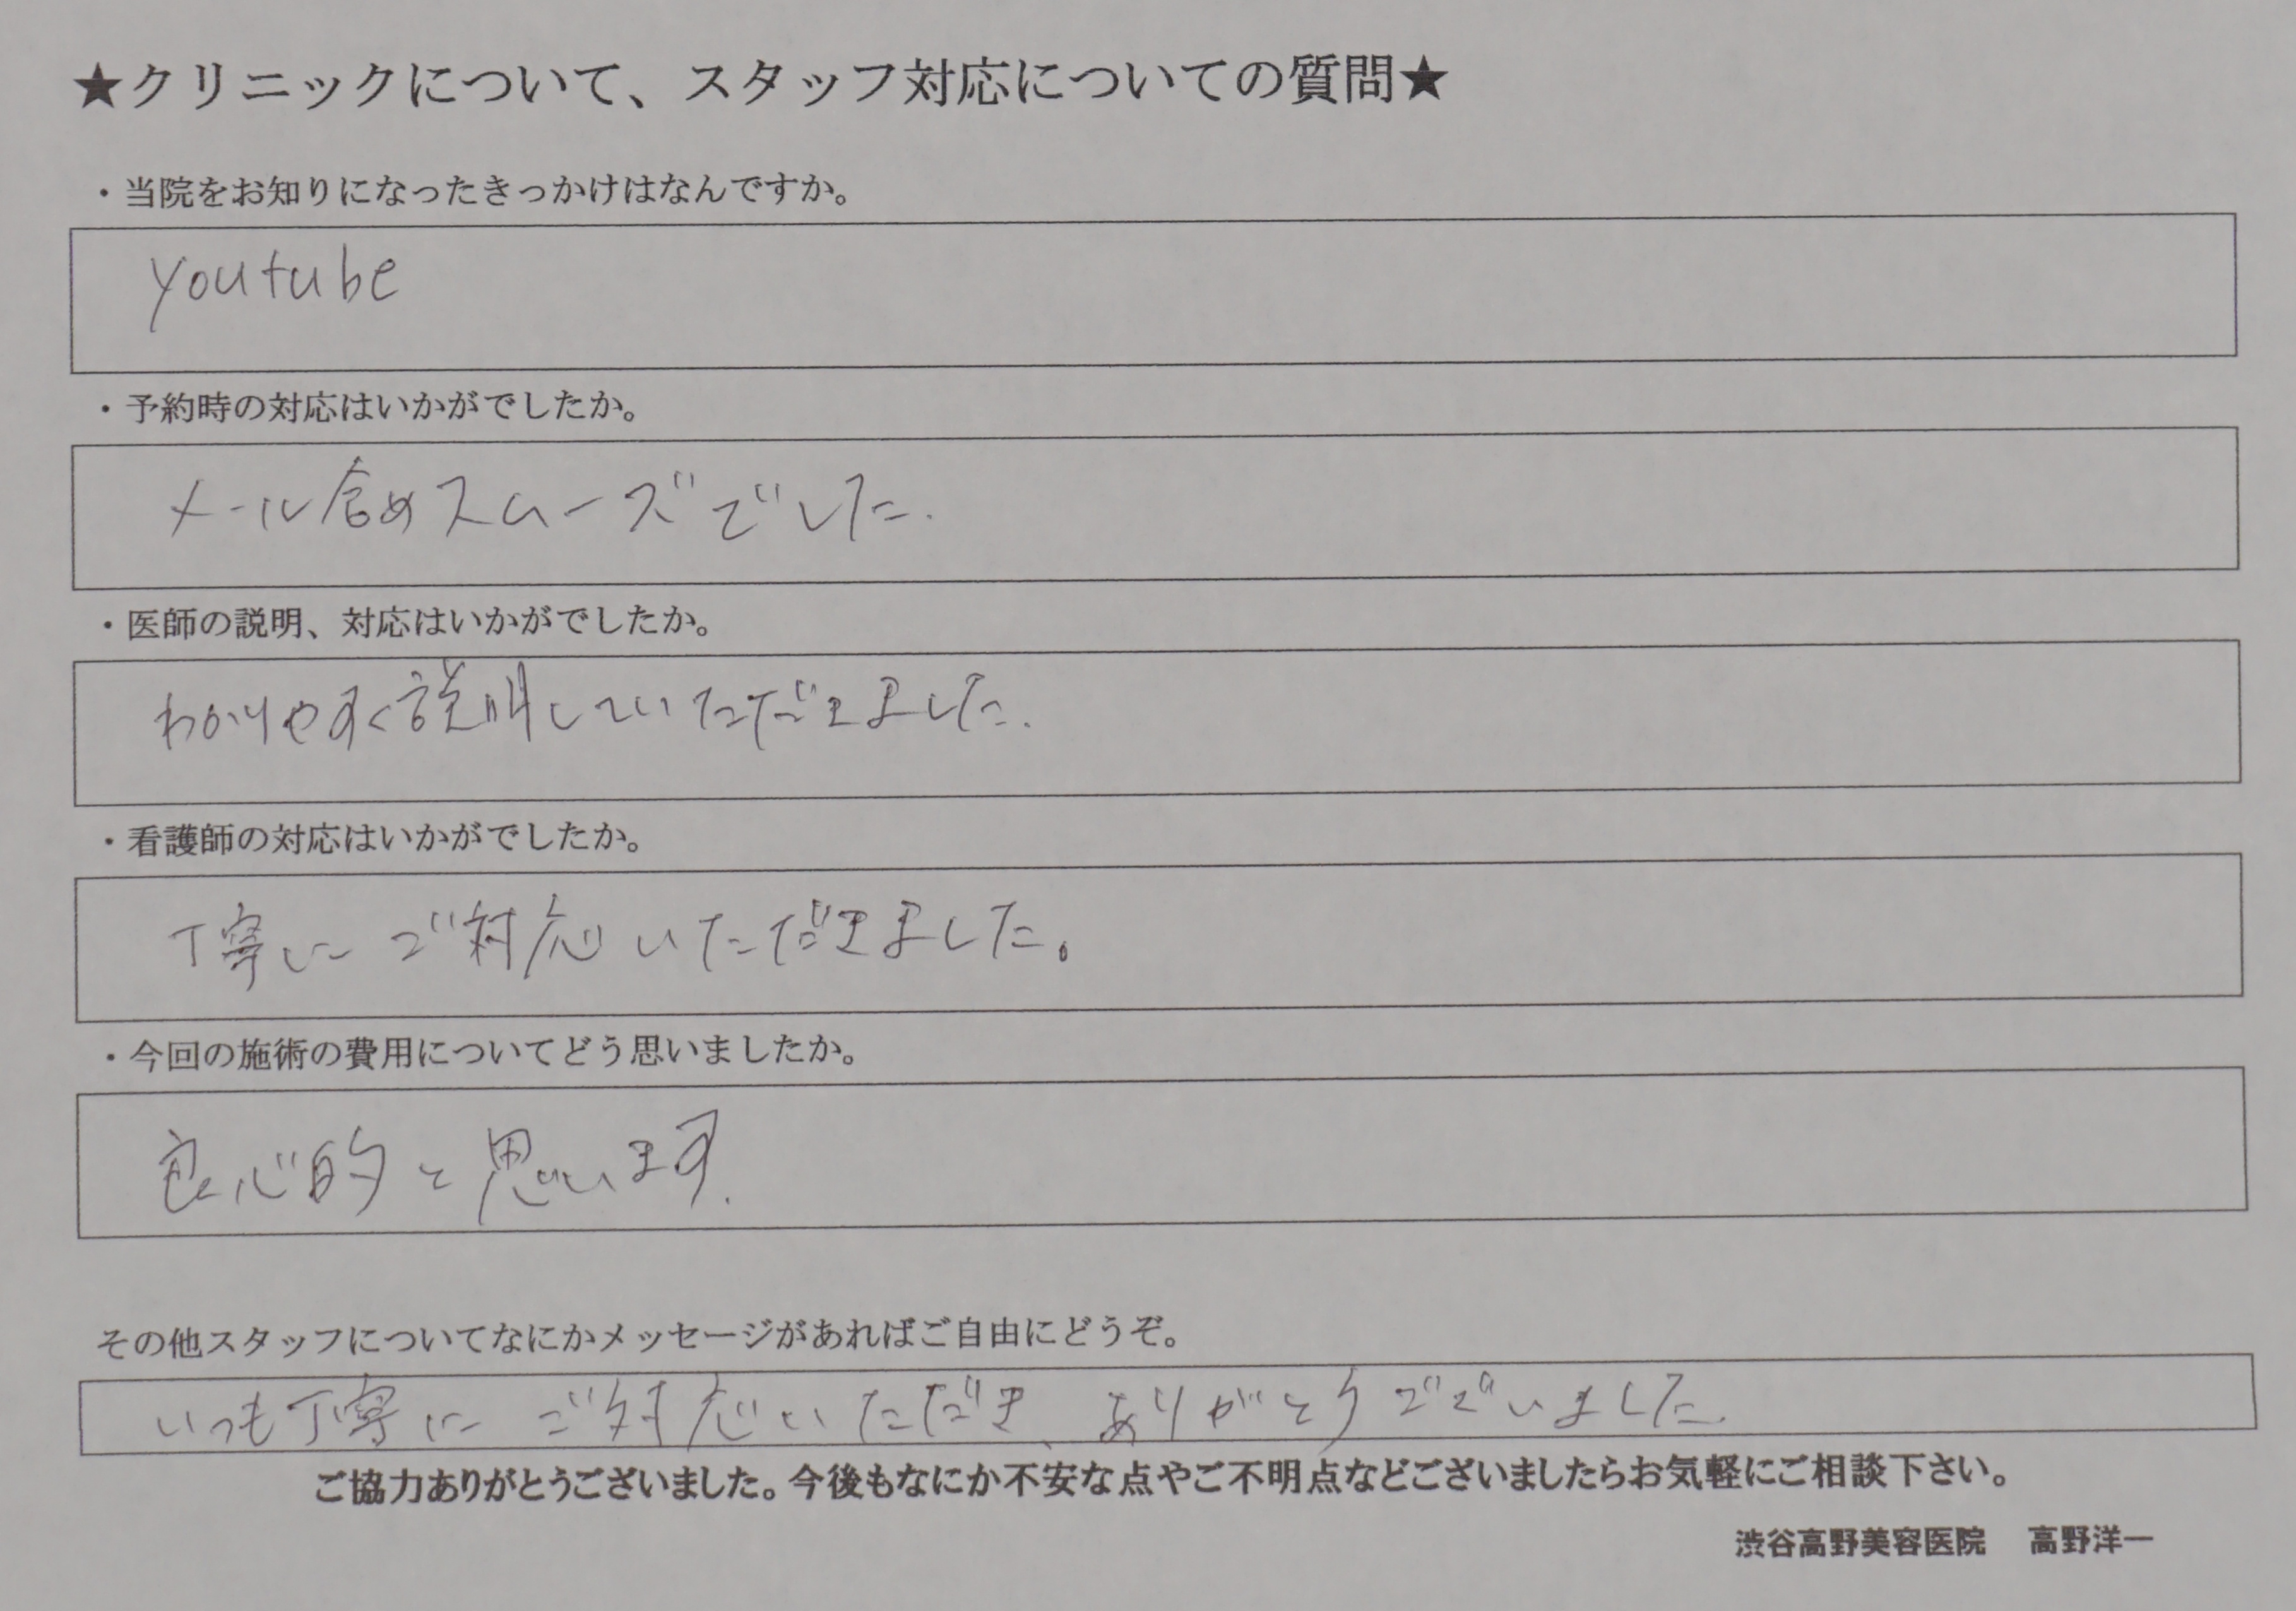 ★クリニックについて、スタッフ対応についての質問★
・当院をお知りになったきっかけはなんですか。
youtube
・予約時の対応はいかがでしたか。
メール含めスムーズでした.
・医師の説明、対応はいかがでしたか。
わかりやすく説明していただきました.
・看護師の対応はいかがでしたか。
丁寧にご対応いただきました。
・今回の施術の費用についてどう思いましたか。
良心的と思います.
その他スタッフについてなにかメッセージがあればご自由にどうぞ。
いつも丁寧にご対応いただき、ありがとうございました.
ご協力ありがとうございました。今後もなにか不安な点やご不明点などございましたらお気軽にご相談下さい。
渋谷高野美容医院　高野洋一